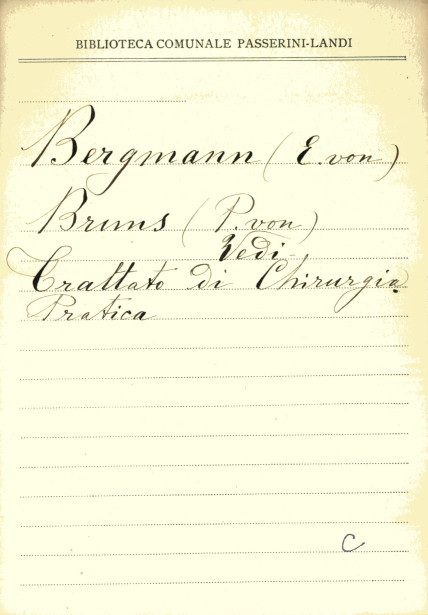 BIBLIOTECA COMUNALE PASSERINI-LANDI
Bergmann (E. von)
Bruns (P. von)
Vedi
Trattato di Chirurgia
Pratica
C